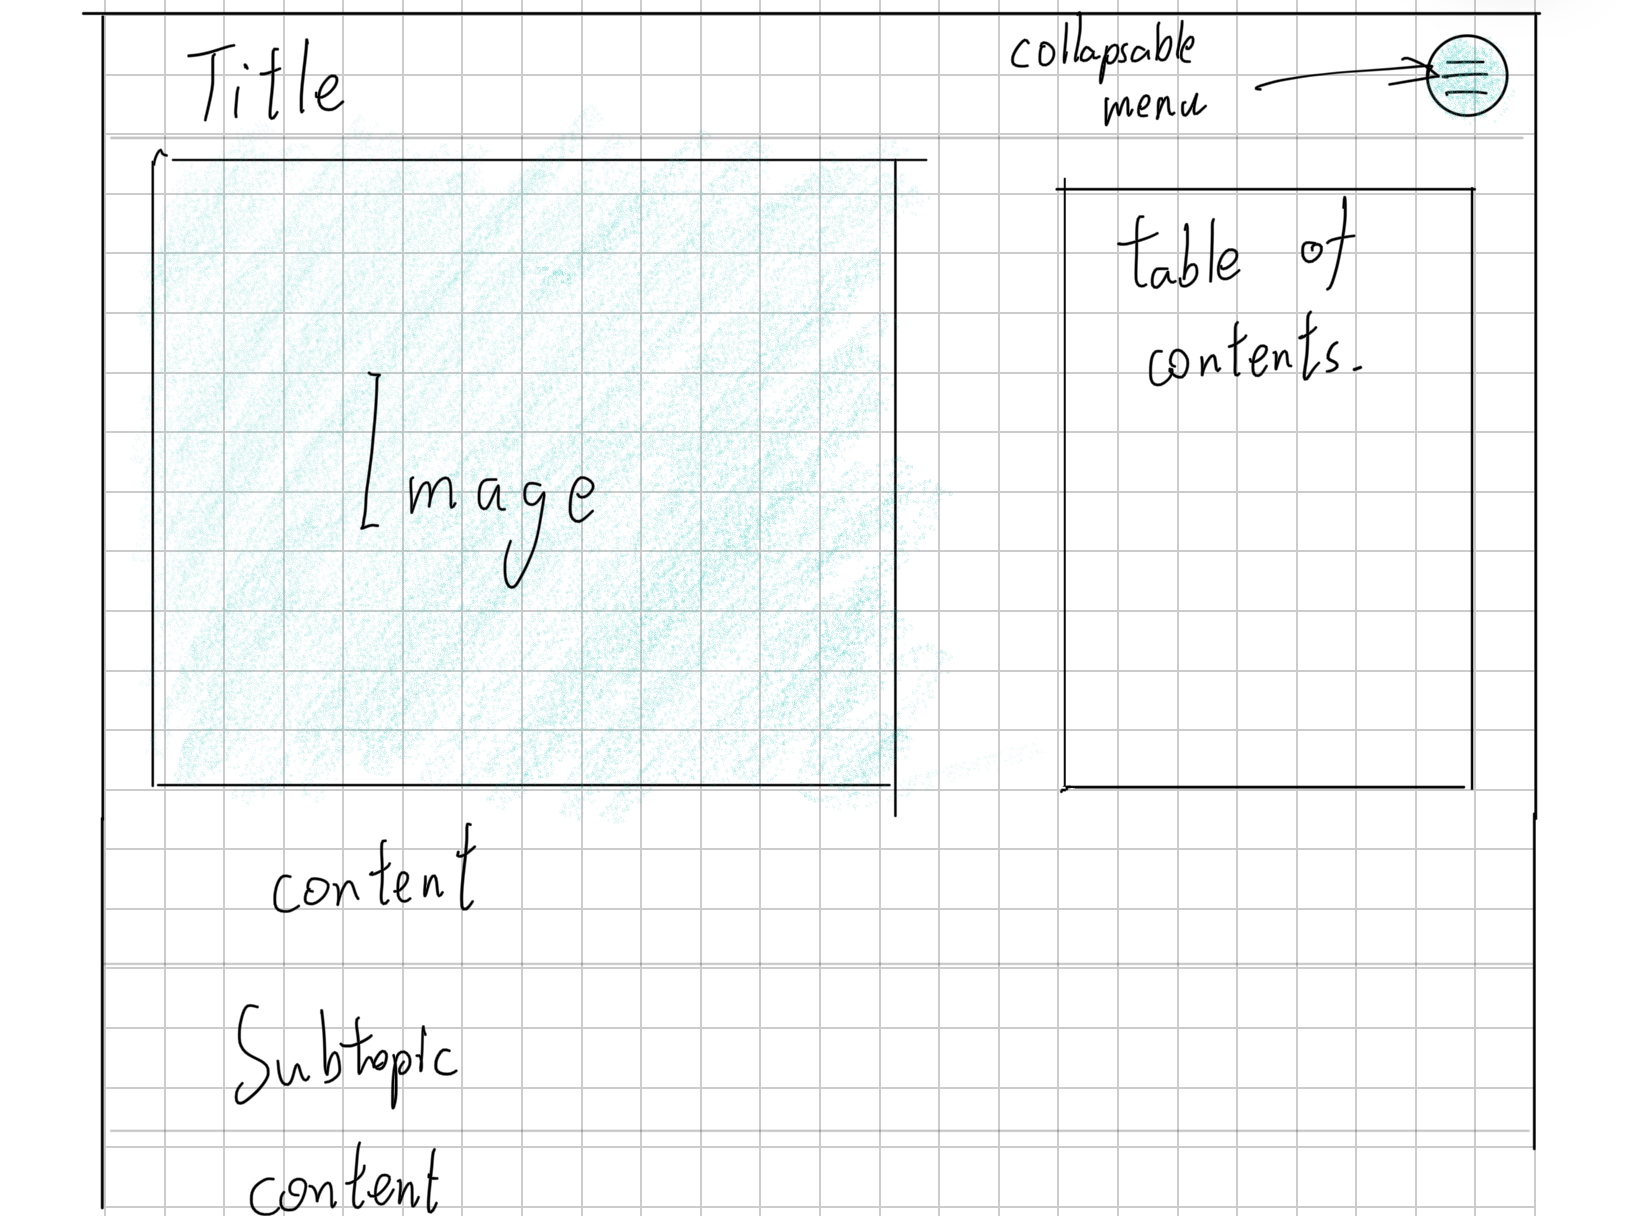 Title
collapsable
menu
Image
table of
contents.
content
Subtopic
content